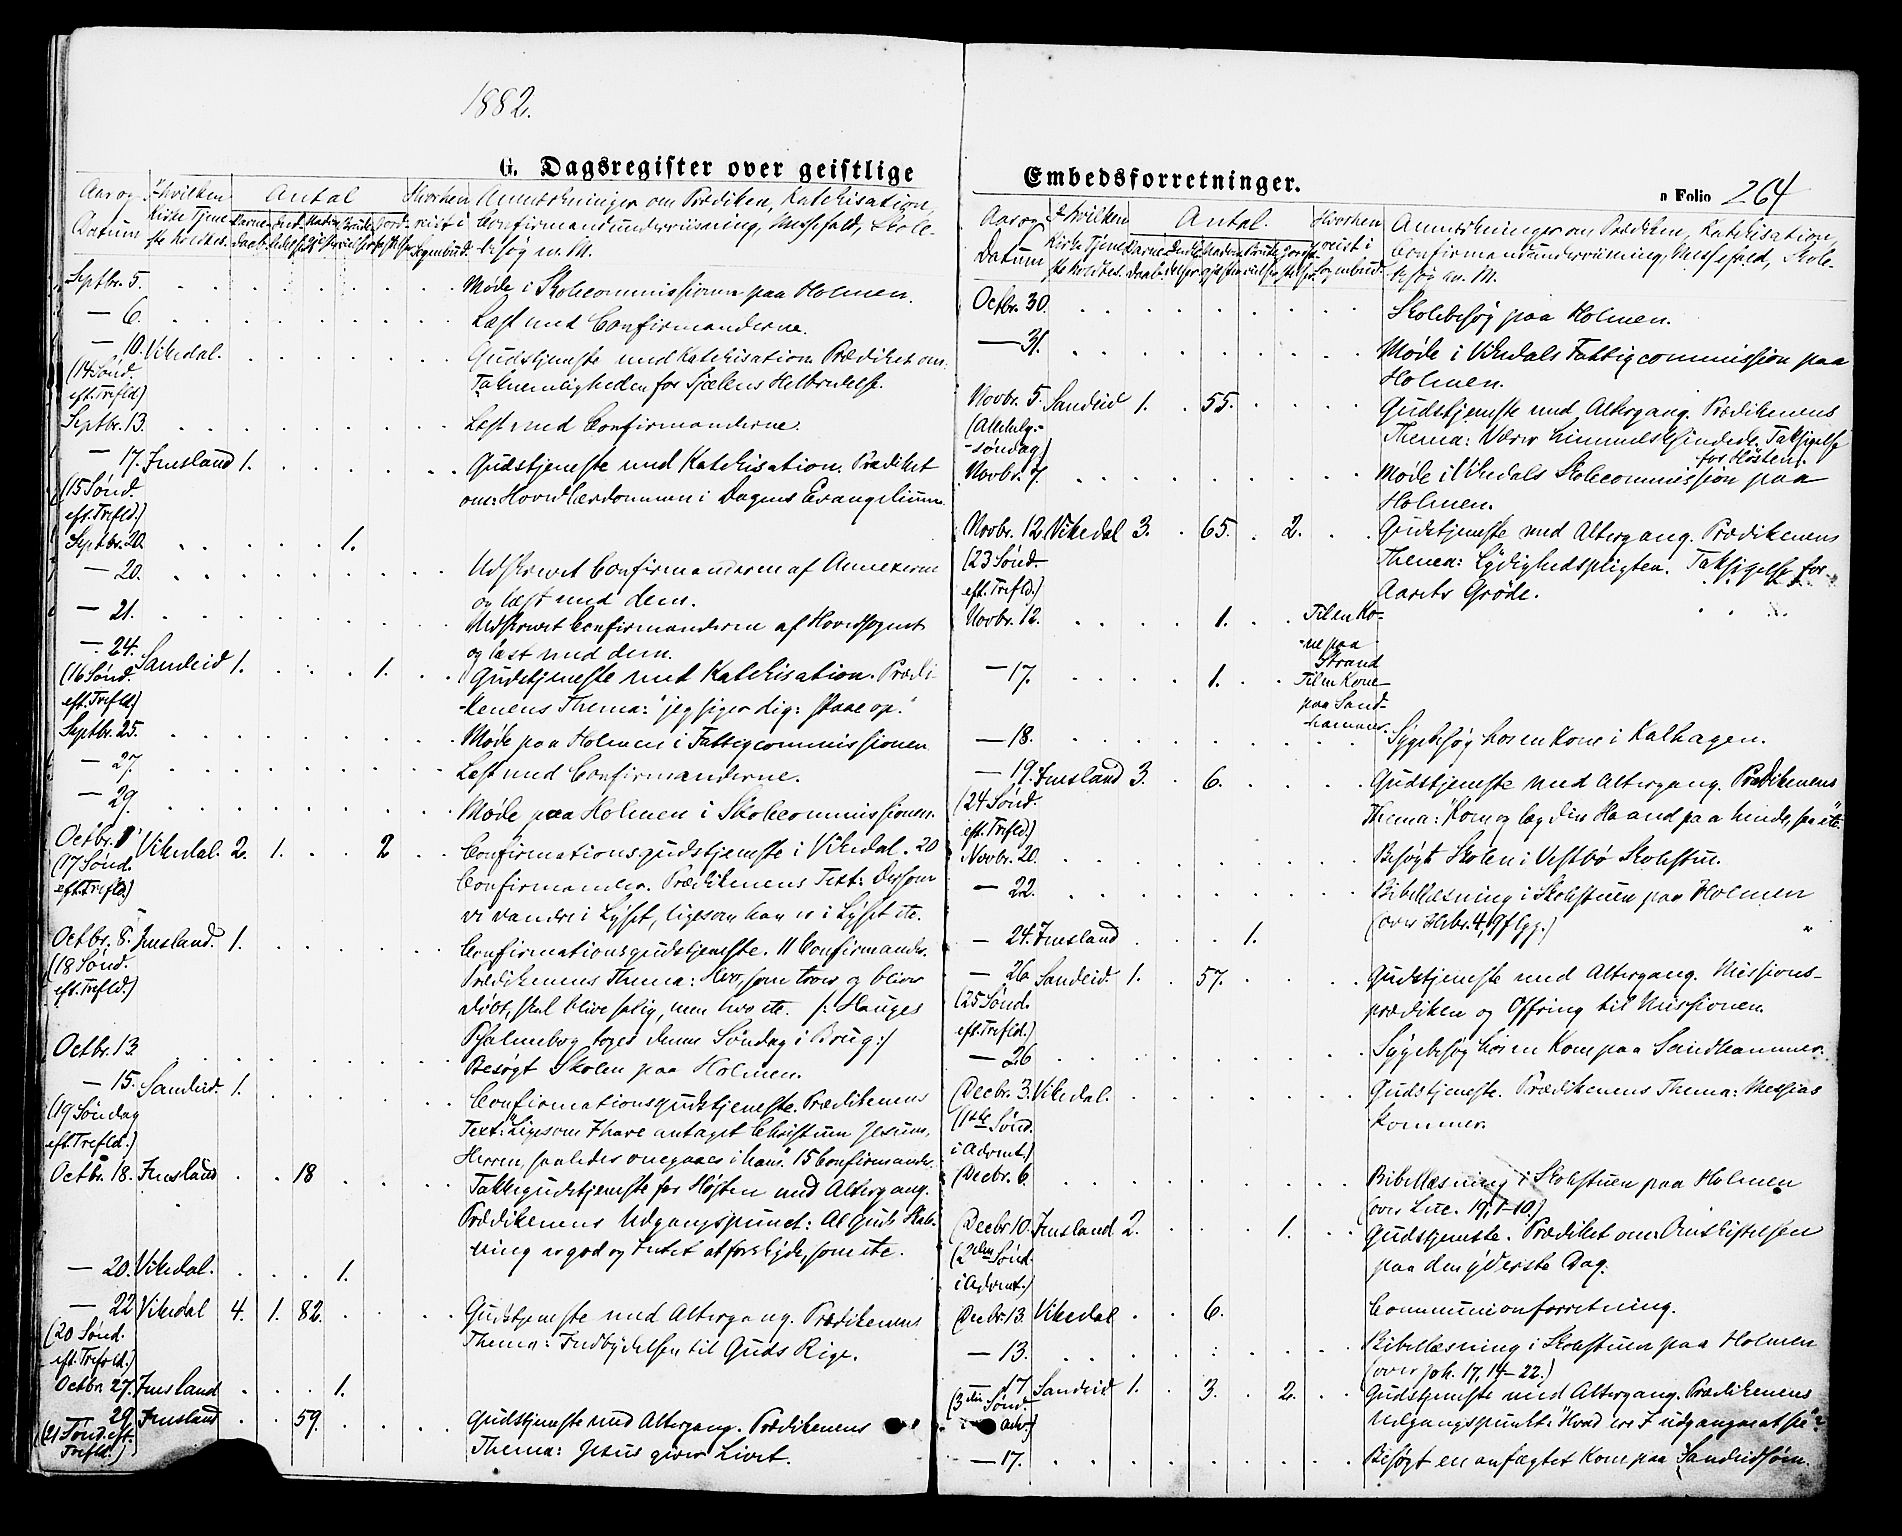 1882.
G. Dagsregister over geistlige
Aar og Datum
I hvilken Kirke Tjeneste holdtes.
Antal
Anmærkninger om Prædiken, Katechisation,
Confirmandunderviisning, Missefald, Skole-
besøg m. M.
Septbr. 5. Møde i Skolecommissionen paa Holmen.
— 6. Læst med Confirmanderne.
— 10. Vikedal. Gudstjeneste med Katechisation. Prædiket om:
(14 Sønd. eft. Trefld) Taknemligheden for Sjælens Helbredelse.
Septbr. 13. Læst med Confirmanderne.
— 17. Imsland 1. Gudstjeneste med Katechisation. Prædiket
(15 Sønd. eft. Trefld.) om: Hovedlærdommen i Dagens Evangelium.
Septbr. 20. 1.
— 20. Udskrevet Confirmanderne af Annexerne
og læst med dem.
— 21. Udskrevet Confirmanderne af Hovedsognet
og læst med dem.
— 24. Sandeid 1. 1. Gudstjeneste med Katechisation. Prædi-
(16 Sønd. eft. Trefld.) kenens Thema: "jeg siger dig: staae op."
Septbr. 25. Møde paa Holmen i Fattigcommissionen
— 27. Læst med Confirmanderne.
— 29. Møde paa Holmen i Skolecommissionen.
Octbr. 1 Vikedal. 2. 1. 2 Confirmationsgudstjeneste i Vikedal. 20
(17 Sønd. eft. Trefld.) Confirmander. Prædikenens Text: Dersom
vi vandre i Lyset, ligesom han er i Lyset etc.
Octbr. 8. Imsland. 1. Confirmationsgudstjeneste. 11 Confirmander.
(18 Sønd. eft. Trefld.) Prædikenens Thema: Hvo, som troer og bliver
døbt, skal blive salig, men hvo etc. /: Hauges
Psalmebog toges denne Søndag i Brug :/
Octbr. 13. Besøgt Skolen paa Holmen.
— 15. Sandeid. 1. Confirmationsgudstjeneste. Prædikenens
(19 Søndag eft. Trefld.) Text: "Ligesom I have antaget Christum Jesum,
Herren, saaledes omgaaes i ham". 15 Confirmander.
Octbr. 18. Imsland 18 Takkegudstjeneste for Høsten med Altergang.
Prædikenens Udgangspunct: Al Guds Skab-
ning er god og Intet at forskyde, som etc.
— 20. Vikedal. 1.
— 22 Vikedal 4. 1. 82. Gudstjeneste med Altergang. Prædikenens
(20 Sønd. eft. Trefold.) Thema: Indbydelsen til Guds Rige.
Octbr 27. Imsland 1.
— 29. Imsland 59. Gudstjeneste med Altergang. Prædikenens
(21 Sønd. eft. Trefld.) Thema: Jesus giver Livet.
Embedsforretninger.
Folio 264
Aar og Datum
I hvilken Kirke Tjeneste holdtes.
Antal.
Anmærkninger om Prædiken, Katechisation,
Confirmandunderviisning, Missefald, Skole-
besøg m. M.
Octbr. 30. Skolebesøg paa Holmen.
— 31. Møde i Vikedals Fattigcommission paa
Holmen.
Novbr. 5. Sandeid 1. 55. Gudstjeneste med Altergang. Prædikenens
(Allehelg.-søndag) Thema: Værer himmelsksindede. Taksigelse
for Høsten.
Novbr. 7. Møde i Vikedals Skolecommission paa
Holmen.
Novbr. 12. Vikedal 3. 65. 2. Gudstjeneste med Altergang. Prædikenens
(23 Sønd. eft. Trefld.) Thema: Lydighedspligten. Taksigelse for
Aarets Grøde.
Novbr. 12. 1. Til en Ko-
ne paa
Strand
— 17. 1. Til en Kone
paa Sand-
hammer.
— 18. Sygebesøg hos en Kone i Kalhagen.
— 19. Imsland 3. 6. Gudstjeneste med Altergang. Prædikenens
(24 Sønd. eft. Trefld.) Thema: "Kom og læg din Haand paa hende, saa etc."
Novbr. 20. Besøgt Skolen i Vestbø Skolestue.
— 22. Bibellæsning i Skolestuen paa Holmen
(over Hebr. 4, 9 flgg.)
— 24. Imsland 1.
— 26 Sandeid. 1. 57. Gudstjeneste med Altergang. Missions-
(25 Sønd. eft. Trefld.) prædiken og Offring til Missionen.
— 26 Sygebesøg hos en Kone paa Sandhammer.
Decbr. 3. Vikedal. Gudstjeneste. Prædikenens Thema: Messias
(1ste Sønd. i Advent.) kommer.
Decbr. 6. Bibellæsning i Skolestuen paa Holmen
(over Luc. 17, 1-10.)
Decbr 10. Imsland 2. 1. Gudstjeneste. Prædiket om: Adskillelsen
(2den Sønd. i Advent.) paa den yderste Dag.
Decbr. 13. Vikedal 6. Communionforretning.
— 13. Bibellæsning i Skolestuen paa Holmen
(over Joh. 17, 14-22.)
— 17. Sandeid 1. 3. 2. Gudstjeneste med Altergang. Prædikenens
(3die Sønd. i Adv.) Udgangspunkt: "Hvad ere I udgangne at see"?
— 17. Besøgt en anfægtet Kone paa Sandeidsøen.